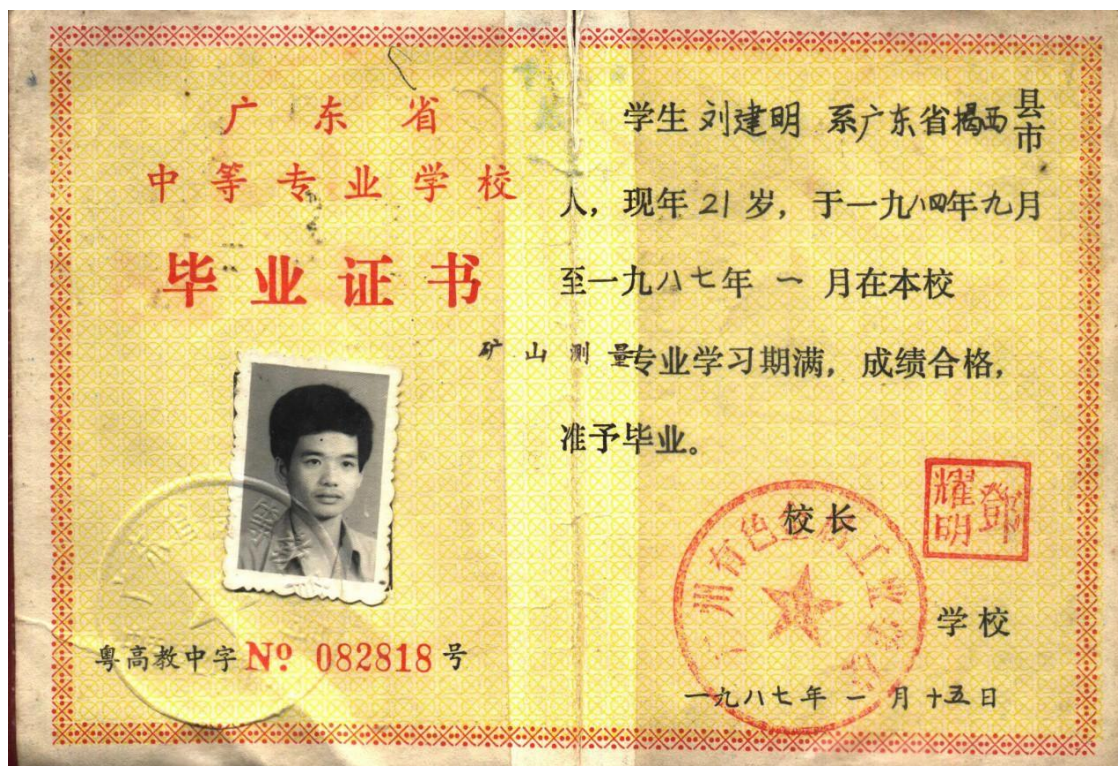 广东省
中等专业学校
毕业证书
粤高教中字 № 082818 号
学生 刘建明 系广东省揭西县市
人，现年 21 岁，于一九八四年九月
至一九八七年 一 月在本校
矿山测量专业学习期满，成绩合格，
准予毕业。
校长
鄧耀明
广州有色金属工业学校
学校
一九八七年 一 月十五日